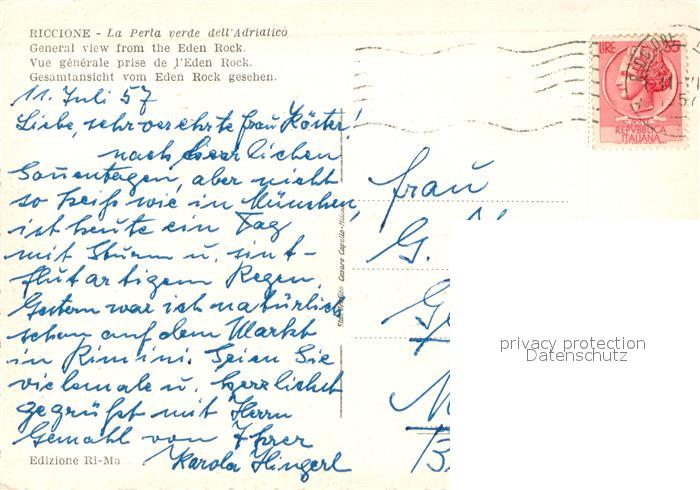 RICCIONE - La Perla verde dell'Adriatico
General view from the Eden Rock.
Vue générale prise de l'Eden Rock.
Gesamtansicht vom Eden Rock gesehen.
11. Juli 57
Liebe, sehr verehrte Frau Köster!
nach herrlichen
Sonnentagen, aber nicht
so heiß wie in München,
ist heute ein Tag
mit Sturm u. sint-
flutartigem Regen.
Gestern war ich natürlich
schon auf dem Markt
in Rimini. Seien Sie
vielemale u. herzlichst
gegrüßt mit Herrn
Gemahl von Ihrer
Karola Hingerl
Edizione Ri-Ma
Cesare Capello-Milano
Frau
G.
M
LIRE 35
REPVBBLICA
ITALIANA
RICCIONE
57
privacy protection
Datenschutz